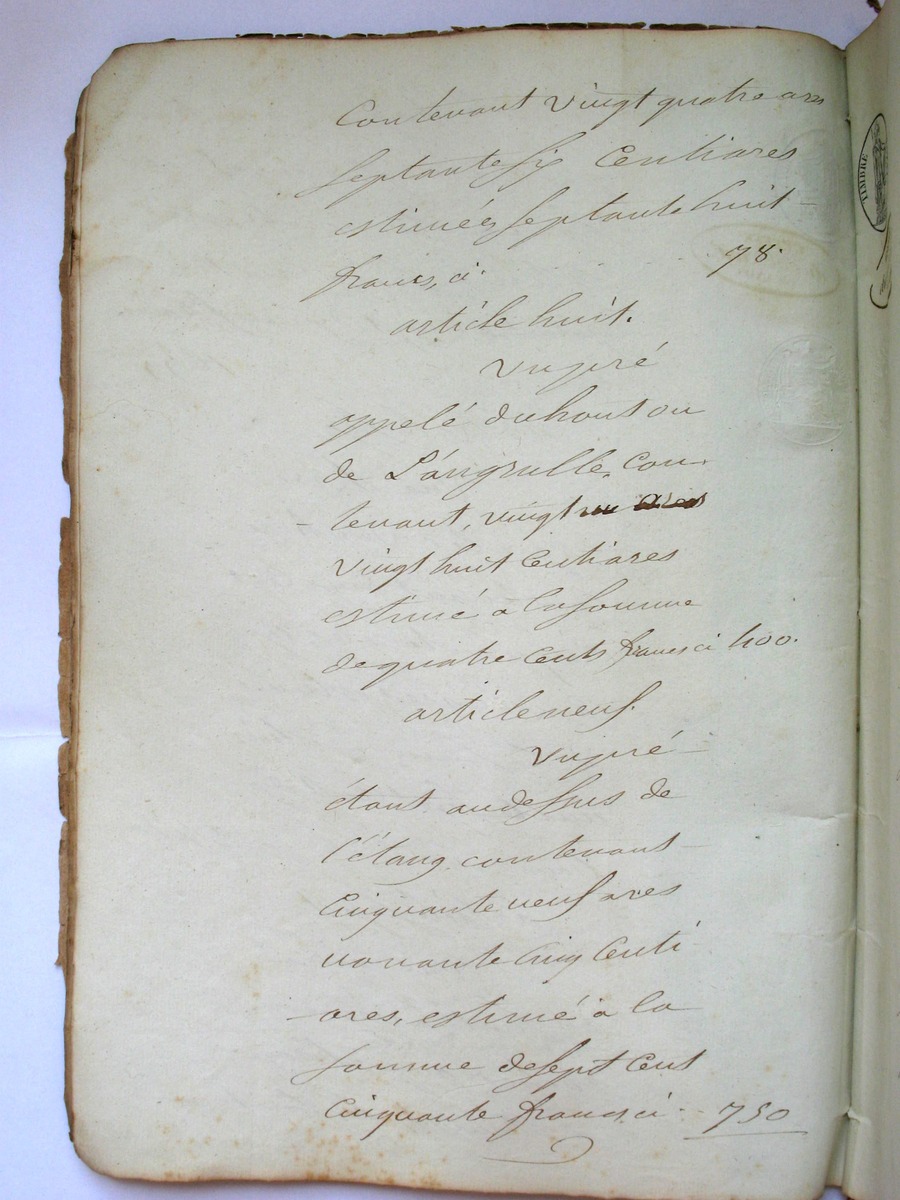 Contenant vingt quatre ares
septante six Centiares
estimées septante huit
francs, ci. 78.
article huit.
un pré
appelé du hout ou
de L'angrulle, Con-
-tenant, vingt un ares
vingt huit Centiares
estimé a la somme
de quatre Cents francs ci 400.
article neuf.
un pré
étant au dessus de
l'étang contenant
Cinquante neuf ares
nonante Cinq Centi
-ares, estimé a la
somme de sept Cent
Cinquante francs ci. 750
TIMBRE